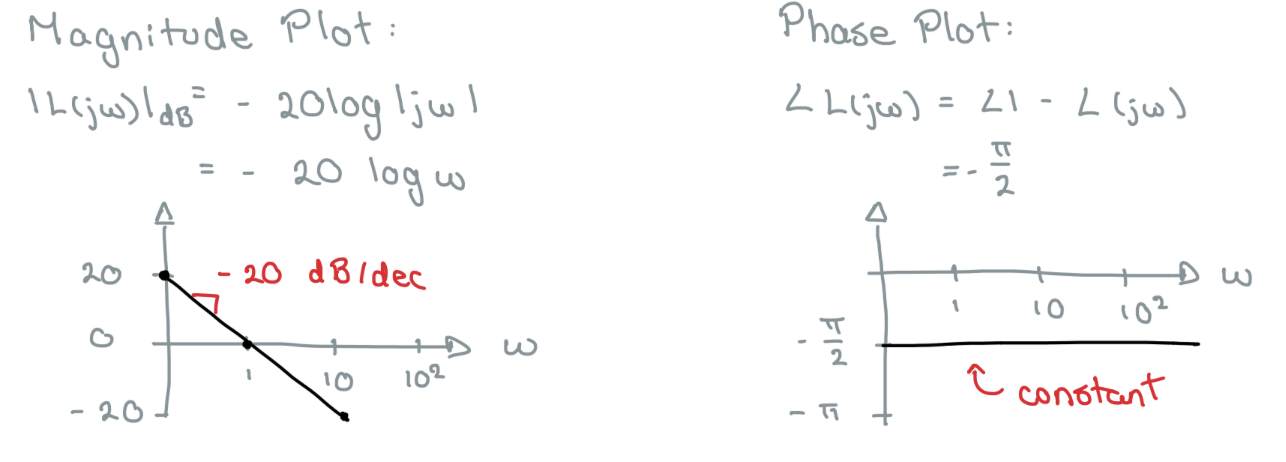 Magnitude Plot:
|L(jω)|dB = - 20log|jω|
= - 20 log ω
20
- 20 dB/dec
0
ω
1
10
10²
- 20
Phase Plot:
∠L(jω) = ∠1 - ∠(jω)
= - π/2
ω
1
10
10²
- π/2
constant
- π